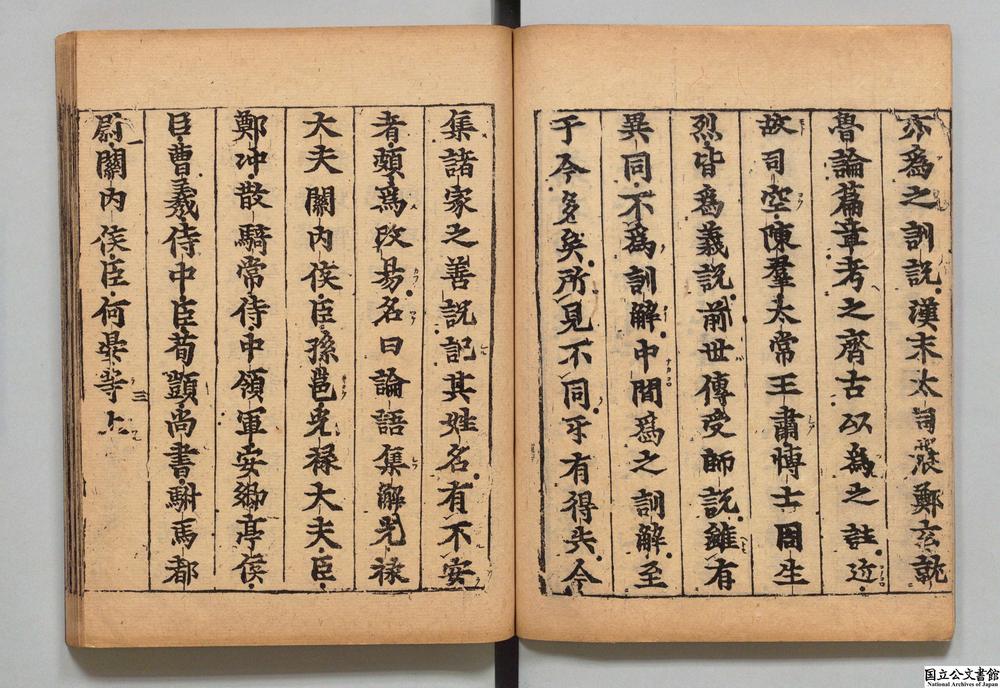 亦為之訓說漢末太司農鄭玄就
魯論篇章考之齊古以為之註近
故司空陳羣太常王肅博士周生
烈皆為義說前世傳受師說雖有
異同不為訓解中間為之訓解至
于今多矣所見不同互有得失今
集諸家之善說記其姓名有不安
者頗為改易名曰論語集解光祿
大夫關內侯臣孫邕光祿大夫臣
鄭冲散騎常侍中領軍安鄉亭侯
臣曹羲侍中臣荀顗尚書駙馬都
尉關內侯臣何晏等上
国立公文書館
National Archives of Japan